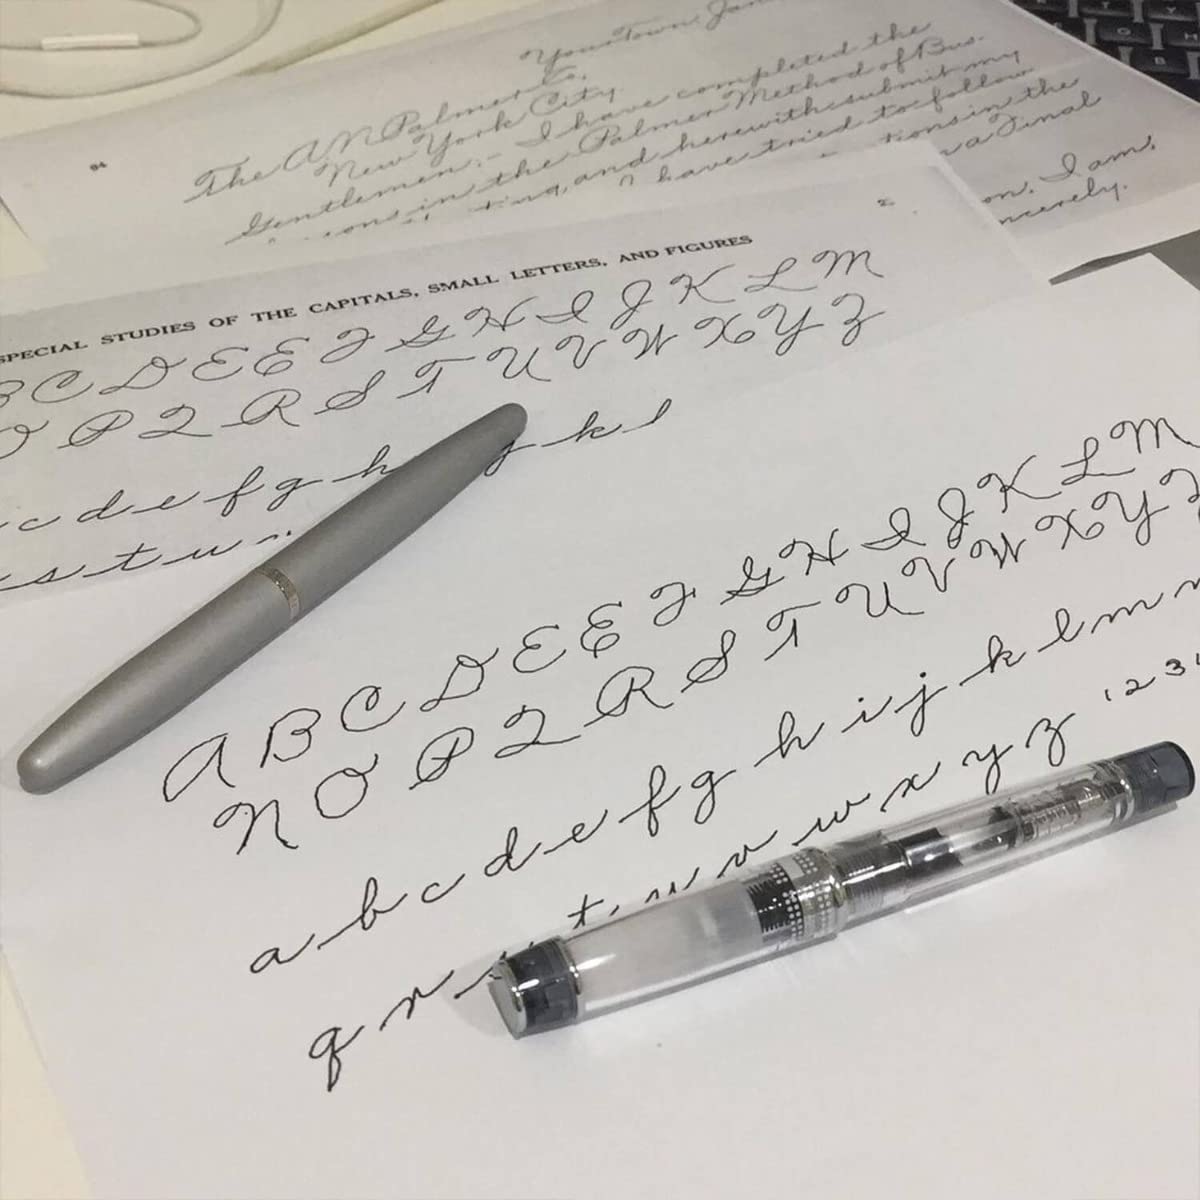 Your Town, Jan
The A N Palmer Co.
New York City.
Gentlemen:- I have completed the
in the Palmer Method of Bus.
and herewith submit my
I have tried to follow
in the
a Final
I am,
94
2
SPECIAL STUDIES OF THE CAPITALS, SMALL LETTERS, AND FIGURES
B C D E E F G H I J K L M
O P Q R S T U V W X Y Z
c d e f g h j k l
s t u
A B C D E E F G H I J K L M
N O P Q R S T U V W X Y Z
a b c d e f g h i j k l m n
q r s t u v w x y z 1 2 3